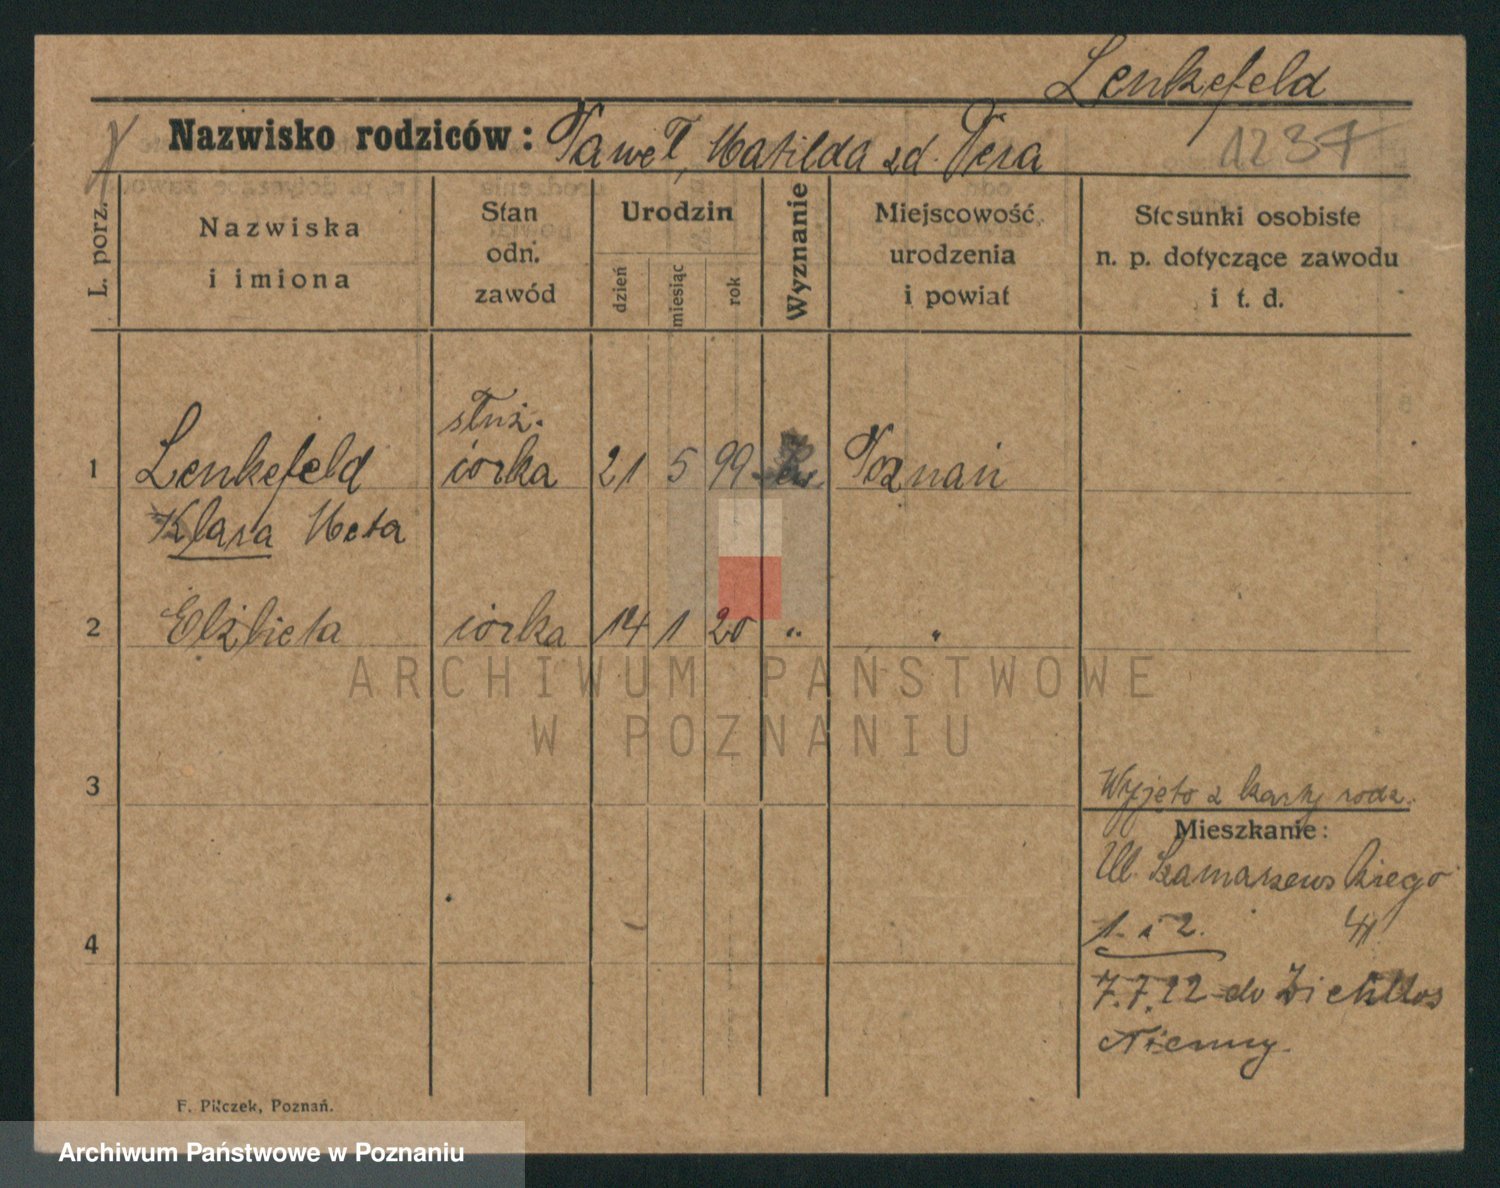 Lenkefeld
Nazwisko rodziców: Paweł, Matilda zd. Pera
1237
L. porz.
Nazwiska
i imiona
Stan
odn.
zawód
Urodzin
dzień
miesiąc
rok
Wyznanie
Miejscowość
urodzenia
i powiat
Stosunki osobiste
n. p. dotyczące zawodu
i t. d.
służ.
1 Lenkefeld córka 21 5 99 ew Poznań
Klara Meta
2 Elżbieta córka 14 1 20 " "
ARCHIWUM PAŃSTWOWE
W POZNANIU
3
Wyjęto z karty rodz.
Mieszkanie:
Ul. Szamarzewskiego
1 i 2.
4
7.7.22 do
Niemcy.
F. Pilczek, Poznań.
Archiwum Państwowe w Poznaniu